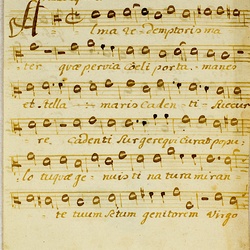 Alma re-demptoris ma
ter quæ pervia cœli porta manes
et stella maris cadenti succur
re cadenti surgere qui curat popu-
lo tu quæ genuisti natura miran
te tuum sctum genitorem Virgo